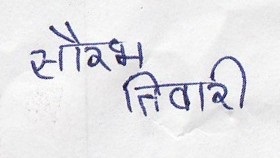 सौरभ
तिवारी